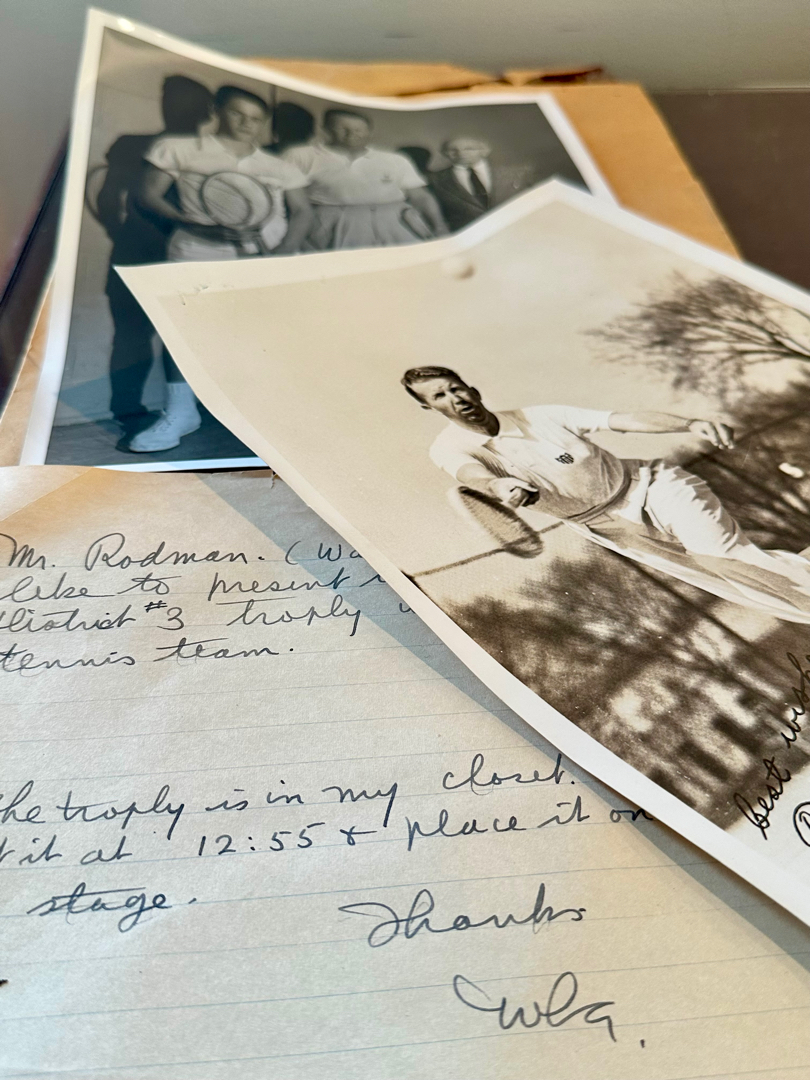 Mr. Rodman. (Wa
like to present
District #3 trophy
tennis team.
he trophy is in my closet.
it at 12:55 & place it on
stage.
Thanks
best wish